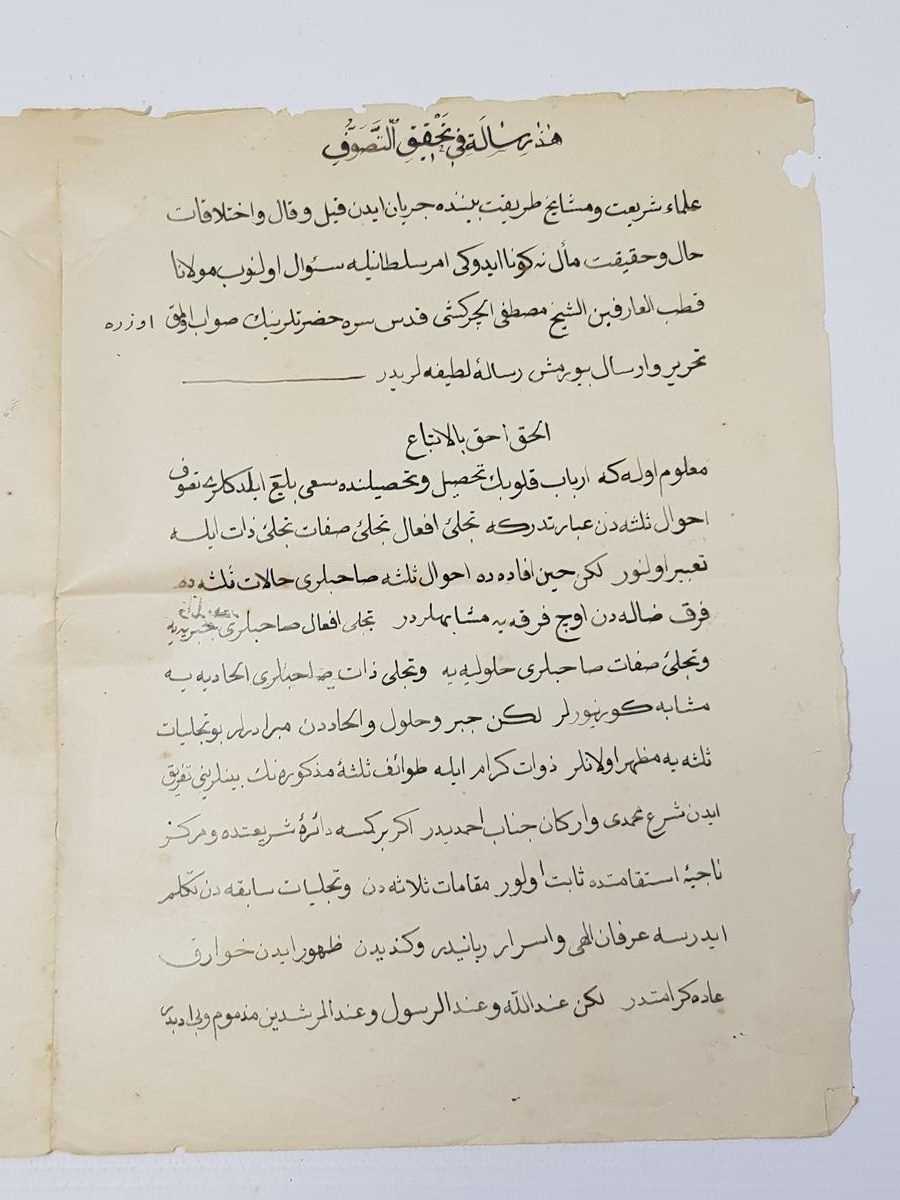 هذه رسالة في تحقيق التصوف
علماء شريعت ومشايخ طريقت بيننده جريان ايدن قيل وقال واختلافات
حال وحقيقت مأل نه كونا ايدوكى امر سلطانيله سئوال اولنوب مولانا
قطب العارفين الشيخ مصطفى الچركشى قدس سره حضرتلرينك صواب اولمق اوزره
تحرير وارسال بيورمش رسالۀ لطيفه لريدر
الحق احق بالاتباع
معلوم اوله كه ارباب قلوبك تحصيل وتحصيلنده سعى بليغ ايلدكلرى تصوف
احوال ثلثه دن عبارتدركه تجلئ افعال تجلئ صفات تجلئ ذات ايله
تعبير اولنور لكن حين افاده ده احوال ثلثه صاحبلرى حالات ثلثه ده
فرق ضاله دن اوچ فرقه يه مشابهلردر تجلى افعال صاحبلرى جبريه يه
وتجلئ صفات صاحبلرى حلوليه يه وتجلى ذات صاحبلرى اتحاديه يه
مشابه كورينورلر لكن جبر وحلول واتحاددن مبرادرلر بو تجليات
ثلثه يه مظهر اولانلر ذوات كرام ايله طوائف ثلثۀ مذكوره نك بينلرينى تفريق
ايدن شرع محمدى واركان جناب احمديدر اكر بركمسه دائرۀ شريعتده ومركز
ناجيۀ استقامتده ثابت اولور مقامات ثلاثه دن وتجليات سابقه دن تكلم
ايدرسه عرفان الهى واسرار ربانيدر وكنديدن ظهور ايدن خوارق
عاده كرامتدر لكن عند الله وعند الرسول وعند المرشدين مذموم وبى ادبدر